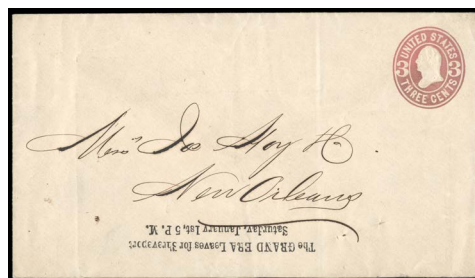 UNITED STATES
3 3
THREE CENTS
New Orleans
The GRAND ERA Leaves for Shreveport
Saturday, January 1st, 5 P. M.